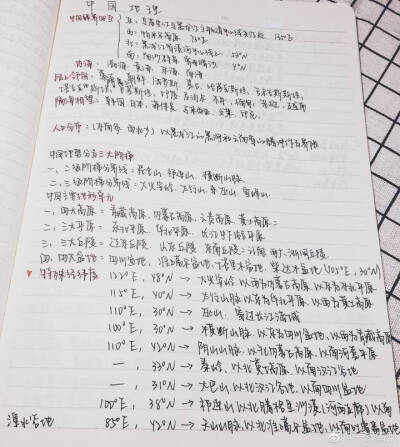 中国地理
中国疆界四至
东：黑龙江与乌苏里江主航道中心线交汇处，135°E
西：帕米尔高原 73°E
北：漠河 黑龙江 中心线上，53°N
南：曾母暗沙 4°N
四海：渤海、黄海、东海、南海
陆上邻国：朝鲜 俄罗斯、蒙古、哈萨克斯坦、吉尔吉斯斯坦、
塔吉克斯坦、印度、尼泊尔、不丹、缅甸、老挝、越南
隔海相望：韩国 日本、菲律宾、马来西亚、文莱、印尼
人口分布：（东南多，西北少）以黑龙江的黑河和云南省的腾冲作为界限
中国地势分为三大阶梯
一、二级阶梯分界线：昆仑山、祁连山、横断山脉
二、三级阶梯分界线：大兴安岭、太行山、巫山、雪峰山
中国主要地形单元
一、四大高原：青藏高原、内蒙古高原、云贵高原、黄土高原
二、三大平原：东北平原、华北平原、长江中下游平原
三、三大丘陵：辽东丘陵、山东丘陵、东南丘陵：江南、两广、浙闽丘陵
四、四大盆地：四川盆地、准噶尔盆地、塔里木盆地、柴达木盆地（105°E，30°N）
特殊经纬度 122°E，48°N → 大兴安岭，以西为内蒙古高原，以东为东北平原
112°E，40°N → 太行山脉，以东为华北平原，以西为黄土高原
110°E，30°N → 巫山，穿过长江
100°E，30°N → 横断山脉，以东为四川盆地，以西为青藏高原
110°E，42°N → 阴山山脉，以北内蒙古高原，以南河套平原
—，33°N → 秦岭，以北黄土高原，以南汉江谷地
—，31°N → 大巴山，以北汉江谷地，以南四川盆地
100°E，38°N → 祁连山，以北腾格里沙漠（河西走廊）以南
湟水谷地 85°E，42°N → 天山山脉，以北准噶尔盆地，以南塔里木盆地